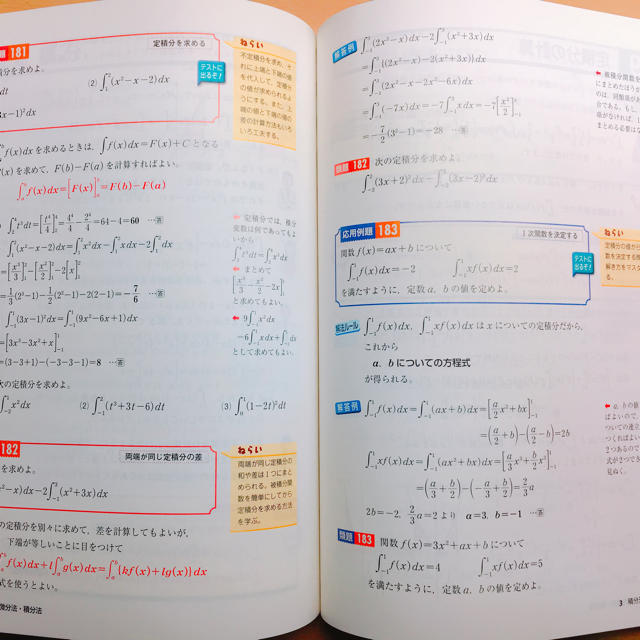 題 181
定積分を求める
積分を求めよ。
dt
(2) ∫₁²(x²−x−2)dx
テストに出るぞ!
3x−1)²dx
ねらい
不定積分を求め,そ
れに上端と下端の値
を代入して,定積分
の値が求められるよ
うにする。また,上
端の値と下端の値の
差の計算方法もいろ
いろ工夫する。
f(x)dxを求めるときは,∫f(x)dx=F(x)+C となる
(x)を求めて,F(b)−F(a)を計算すればよい。
∫ₐᵇf(x)dx=[F(x)]ₐᵇ=F(b)−F(a)
t³dt=[t⁴/4]₂⁴=4⁴/4−2⁴/4=64−4=60 …答
(x²−x−2)dx=∫₁²x²dx−∫₁²xdx−2∫₁²dx
=[x³/3]₁²−[x²/2]₁²−2[x]₁²
=1/3(2³−1)−1/2(2²−1)−2(2−1)=−7/6 …答
(3x−1)²dx=∫₋₁¹(9x²−6x+1)dx
=[3x³−3x²+x]₋₁¹
=(3−3+1)−(−3−3−1)=8 …答
← 定積分では,積分
変数は何であってもよ
いから
∫₂⁴t³dt=∫₂⁴x³dx
← まとめて
[x³/3−x²/2−2x]₁²
と求めてもよい。
← 9∫₋₁¹x²dx
−6∫₋₁¹xdx+∫₋₁¹dx
として求めてもよい。
次の定積分を求めよ。
x²dx
(2) ∫₋₁²(t³+3t−6)dt
(3) ∫₀¹(1−2t)²dt
182
両端が同じ定積分の差
を求めよ。
x²−x)dx−2∫₋₁³(x²+3x)dx
ねらい
両端が同じ定積分の
和や差は1つにまと
められる。被積分関
数を簡単にしてから
定積分を求める方法
を学ぶ。
の定積分を別々に求めて,差を計算してもよいが,
下端が等しいことに目をつけて
f(x)dx+l∫ₐᵇg(x)dx=∫ₐᵇ{kf(x)+lg(x)}dx
式を使うとよい。
微分法・積分法
解答例 ∫₋₁³(2x²−x)dx−2∫₋₁³(x²+3x)dx
=∫₋₁³{(2x²−x)−2(x²+3x)}dx
=∫₋₁³(2x²−x−2x²−6x)dx
=∫₋₁³(−7x)dx=−7∫₋₁³xdx=−7[x²/2]₋₁³
=−7/2(3²−1)=−28 …答
← 被積分関数を
にまとめたほうが
のは,同類項が
合である。もし,
項がなければ,1
まとめる必要は
類題 182 次の定積分を求めよ。
(3x+2)²dx−∫(3x−2)²dx
応用例題 183
1次関数を決定する
関数 f(x)=ax+b について
∫₋₁¹f(x)dx=−2
∫₋₁¹xf(x)dx=2
を満たすように,定数 a,b の値を定めよ。
テストに出るぞ!
ねらい
定積分の値から
数を決定する問
解き方をマスタ
る。
解法ルール ∫₋₁¹f(x)dx,∫₋₁¹xf(x)dx は x についての定積分だから,
これから
a,b についての方程式
が得られる。
解答例 ∫₋₁¹f(x)dx=∫₋₁¹(ax+b)dx=[a/2 x²+bx]₋₁¹
=(a/2+b)−(a/2−b)=2b
∫₋₁¹xf(x)dx=∫₋₁¹(ax²+bx)dx=[a/3 x³+b/2 x²]₋₁¹
=(a/3+b/2)−(−a/3+b/2)=2/3 a
2b=−2,2/3 a=2 より a=3,b=−1 …答
← a,b の値
ばよいので,
ついての連立
つくればよい
2つあるので
式が2つで
見ぬく。
類題 183 関数 f(x)=3x²+ax+b について
∫₋₁¹f(x)dx=4
∫₋₁¹xf(x)dx=5
を満たすように,定数 a,b の値を定めよ。
3 積分